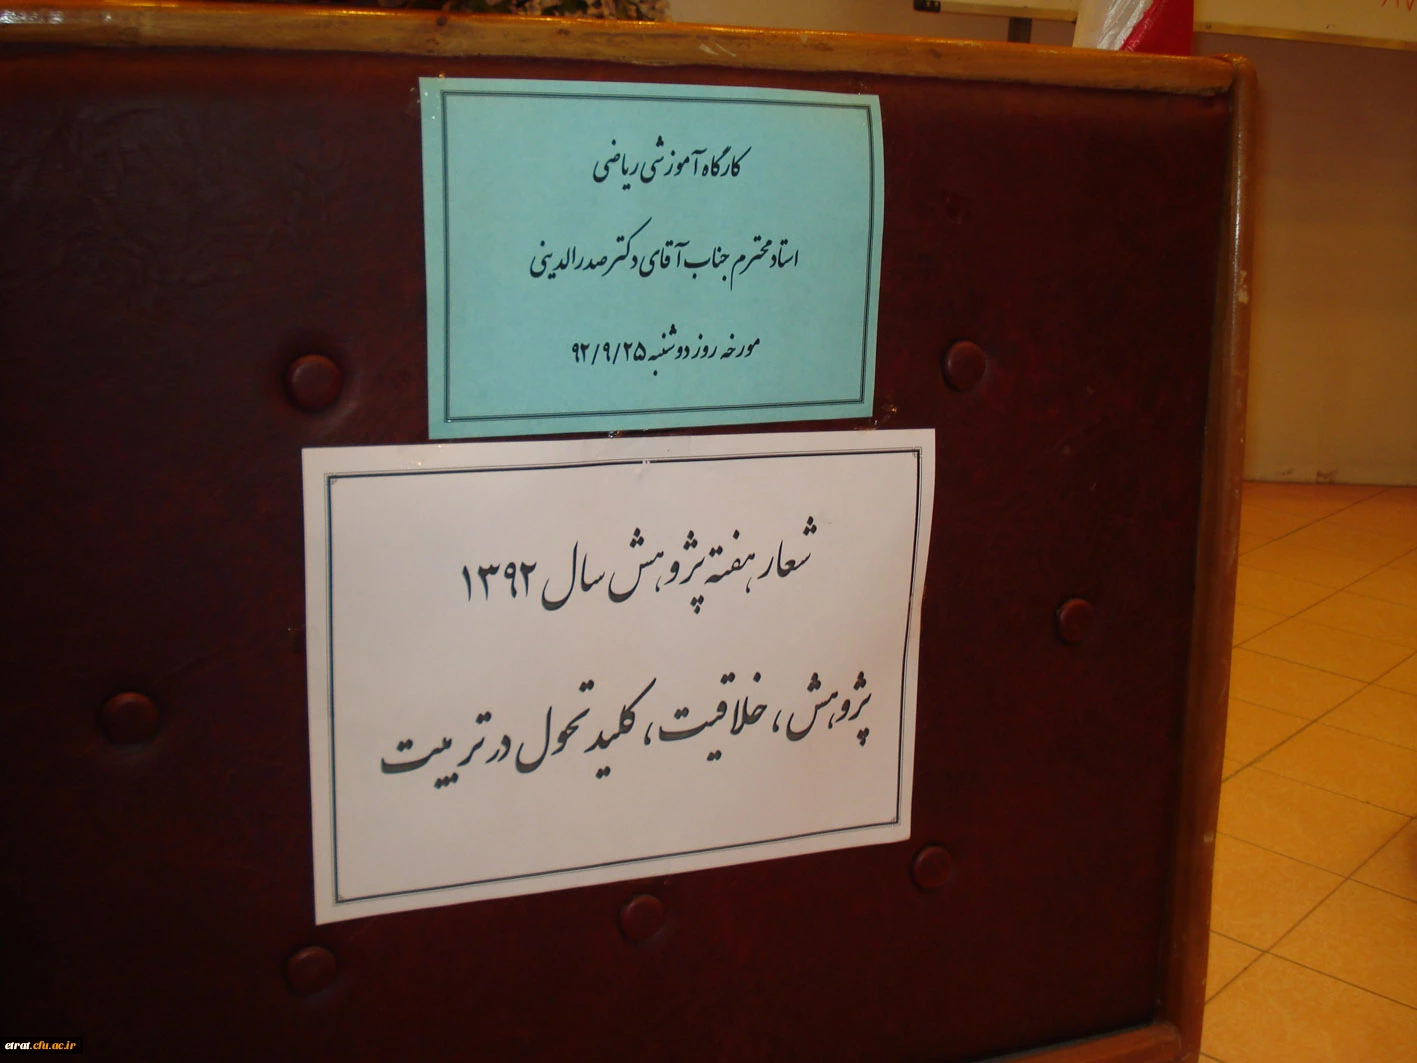 کارگاه آموزشی ریاضی
استاد محترم جناب آقای دکتر صدرالدینی
مورخه روز دوشنبه ۹۲/۹/۲۵
شعار هفته پژوهش سال ۱۳۹۲
پژوهش، خلاقیت، کلید تحول در تربیت
etrat.cfu.ac.ir